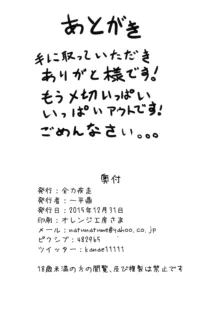 あとがき
手に取っていただき
ありがと様です!
もう〆切いっぱい
いっぱいアウトです!
ごめんなさい。。。
奥付
発行:全力疾走
発行者:一平鼎
発行日:2015年12月31日
印刷:オレンジ工房さま
メール:natumatume@yahoo.co.jp
ピクシブ:482965
ツイッター:kanae11111
18歳未満の方の閲覧、及び複製は禁止です